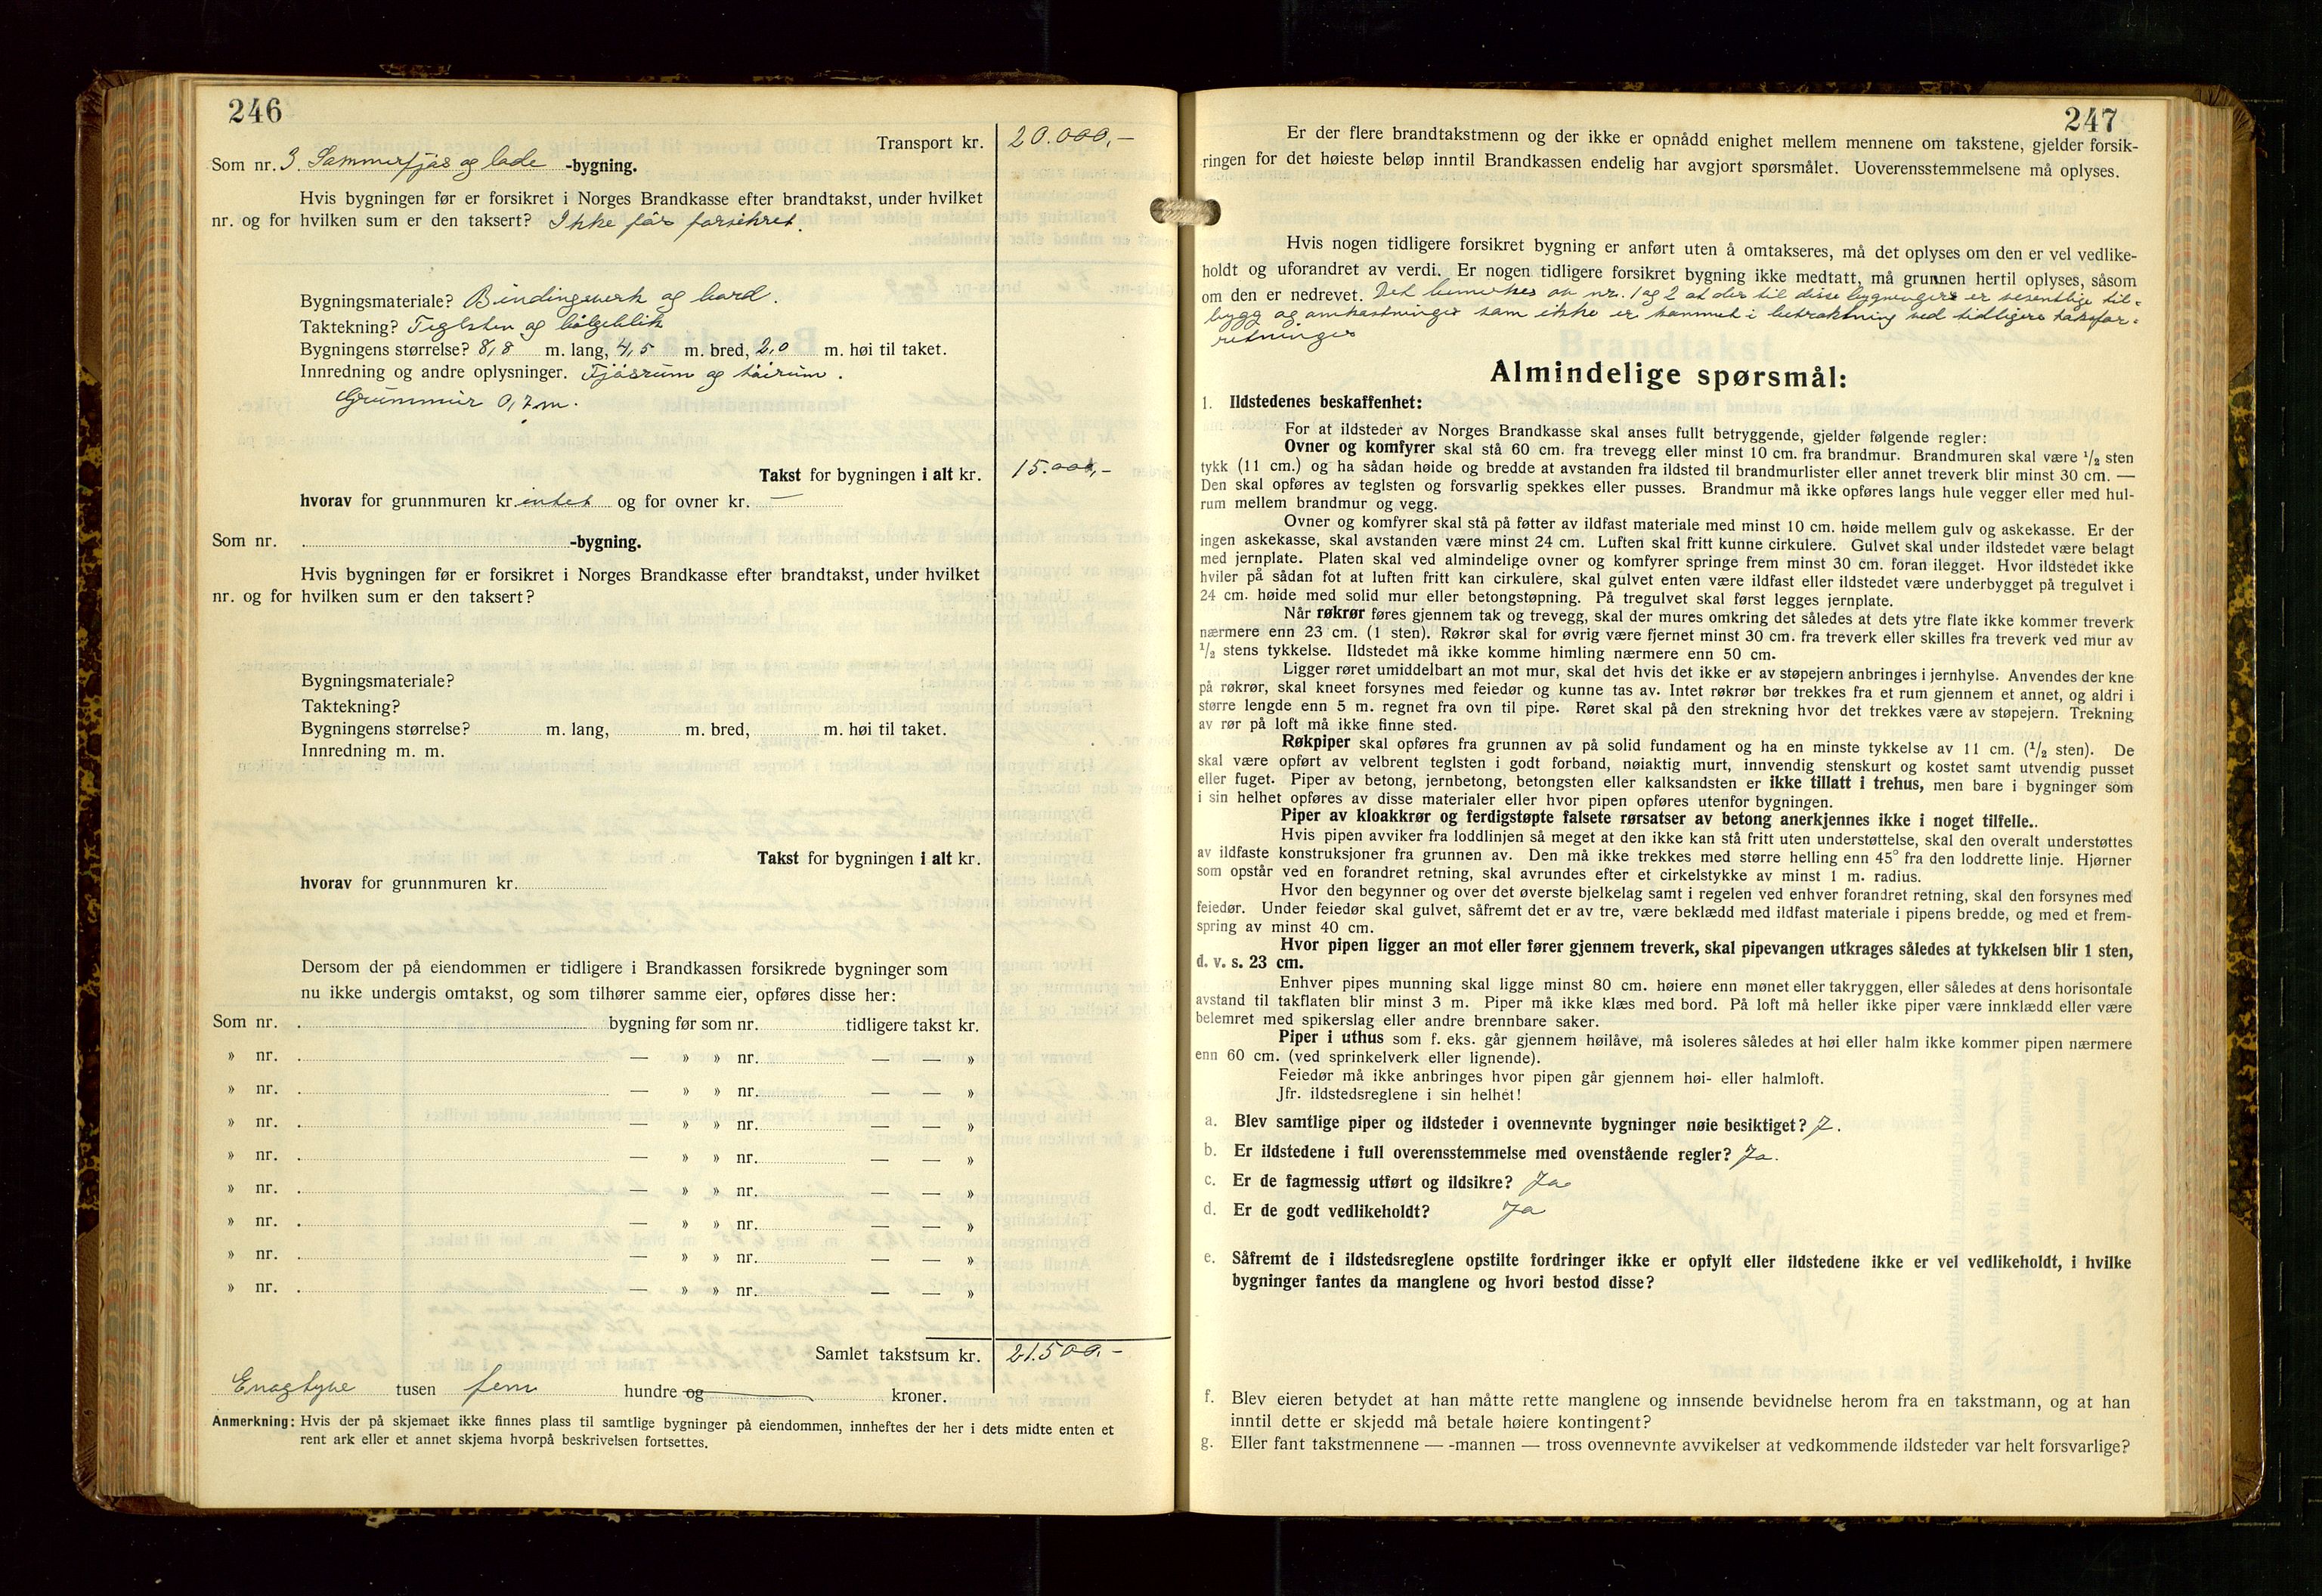 246
Transport kr. 20.000,-
Som nr. 3. Sommerfjøs og løde -bygning.
Hvis bygningen før er forsikret i Norges Brandkasse efter brandtakst, under hvilket
nr. og for hvilken sum er den taksert? Ikke før forsikret.
Bygningsmateriale? Bindingsverk og bord.
Taktekning? Teglsten og bølgeblik
Bygningens størrelse? 8,8 m. lang, 4,5 m. bred, 2,0 m. høi til taket.
Innredning og andre oplysninger. Fjøsrum og høirum.
Grunnmur 0,7 m.
Takst for bygningen i alt kr. 15.00,-
hvorav for grunnmuren kr. intet og for ovner kr. —
Som nr. -bygning.
Hvis bygningen før er forsikret i Norges Brandkasse efter brandtakst, under hvilket
nr. og for hvilken sum er den taksert?
Bygningsmateriale?
Taktekning?
Bygningens størrelse? m. lang, m. bred, m. høi til taket.
Innredning m. m.
Takst for bygningen i alt kr.
hvorav for grunnmuren kr.
Dersom der på eiendommen er tidligere i Brandkassen forsikrede bygninger som
nu ikke undergis omtakst, og som tilhører samme eier, opføres disse her:
Som nr. bygning før som nr. tidligere takst kr.
» nr. — » » nr. — — »
» nr. — » » nr. — — »
» nr. — » » nr. — — »
» nr. — » » nr. — — »
» nr. — » » nr. — — »
» nr. — » » nr. — — »
» nr. — » » nr. — — »
» nr. — » » nr. — — »
Samlet takstsum kr. 21.500,-
Enogtyve tusen fem hundre og kroner.
Anmerkning: Hvis der på skjemaet ikke finnes plass til samtlige bygninger på eiendommen, innheftes der her i dets midte enten et
rent ark eller et annet skjema hvorpå beskrivelsen fortsettes.
247
Er der flere brandtakstmenn og der ikke er opnådd enighet mellem mennene om takstene, gjelder forsik-
ringen for det høieste beløp inntil Brandkassen endelig har avgjort spørsmålet. Uoverensstemmelsene må oplyses.
Hvis nogen tidligere forsikret bygning er anført uten å omtakseres, må det oplyses om den er vel vedlike-
holdt og uforandret av verdi. Er nogen tidligere forsikret bygning ikke medtatt, må grunnen hertil oplyses, såsom
om den er nedrevet. Det bemerkes om nr. 1 og 2 at der til disse bygninger er vesentlige til-
bygg og omkostninger som ikke er kommet i betraktning ved tidligere takstfor-
retninger
Almindelige spørsmål:
1. Ildstedenes beskaffenhet:
For at ildsteder av Norges Brandkasse skal anses fullt betryggende, gjelder følgende regler:
Ovner og komfyrer skal stå 60 cm. fra trevegg eller minst 10 cm. fra brandmur. Brandmuren skal være ½ sten
tykk (11 cm.) og ha sådan høide og bredde at avstanden fra ildsted til brandmurlister eller annet treverk blir minst 30 cm. —
Den skal opføres av teglsten og forsvarlig spekkes eller pusses. Brandmur må ikke opføres langs hule vegger eller med hul-
rum mellem brandmur og vegg.
Ovner og komfyrer skal stå på føtter av ildfast materiale med minst 10 cm. høide mellem gulv og askekasse. Er der
ingen askekasse, skal avstanden være minst 24 cm. Luften skal fritt kunne cirkulere. Gulvet skal under ildstedet være belagt
med jernplate. Platen skal ved almindelige ovner og komfyrer springe frem minst 30 cm. foran ilegget. Hvor ildstedet ikke
hviler på sådan fot at luften fritt kan cirkulere, skal gulvet enten være ildfast eller ildstedet være underbygget på tregulvet i
24 cm. høide med solid mur eller betongstøpning. På tregulvet skal først legges jernplate.
Når røkrør føres gjennem tak og trevegg, skal der mures omkring det således at dets ytre flate ikke kommer treverk
nærmere enn 23 cm. (1 sten). Røkrør skal for øvrig være fjernet minst 30 cm. fra treverk eller skilles fra treverk ved mur av
½ stens tykkelse. Ildstedet må ikke komme himling nærmere enn 50 cm.
Ligger røret umiddelbart an mot mur, skal det hvis det ikke er av støpejern anbringes i jernhylse. Anvendes der kne
på røkrør, skal kneet forsynes med feiedør og kunne tas av. Intet røkrør bør trekkes fra et rum gjennem et annet, og aldri i
større lengde enn 5 m. regnet fra ovn til pipe. Røret skal på den strekning hvor det trekkes være av støpejern. Trekning
av rør på loft må ikke finne sted.
Røkpiper skal opføres fra grunnen av på solid fundament og ha en minste tykkelse av 11 cm. (½ sten). De
skal være opført av velbrent teglsten i godt forband, nøiaktig murt, innvendig stenskurt og kostet samt utvendig pusset
eller fuget. Piper av betong, jernbetong, betongsten eller kalksandsten er ikke tillatt i trehus, men bare i bygninger som
i sin helhet opføres av disse materialer eller hvor pipen opføres utenfor bygningen.
Piper av kloakkrør og ferdigstøpte falsete rørsatser av betong anerkjennes ikke i noget tilfelle..
Hvis pipen avviker fra loddlinjen så meget at den ikke kan stå fritt uten understøttelse, skal den overalt understøttes
av ildfaste konstruksjoner fra grunnen av. Den må ikke trekkes med større helling enn 45° fra den loddrette linje. Hjørner
som opstår ved en forandret retning, skal avrundes efter et cirkelstykke av minst 1 m. radius.
Hvor den begynner og over det øverste bjelkelag samt i regelen ved enhver forandret retning, skal den forsynes med
feiedør. Under feiedør skal gulvet, såfremt det er av tre, være beklædd med ildfast materiale i pipens bredde, og med et frem-
spring av minst 40 cm.
Hvor pipen ligger an mot eller fører gjennem treverk, skal pipevangen utkrages således at tykkelsen blir 1 sten,
d. v. s. 23 cm.
Enhver pipes munning skal ligge minst 80 cm. høiere enn mønet eller takryggen, eller således at dens horisontale
avstand til takflaten blir minst 3 m. Piper må ikke klæs med bord. På loft må heller ikke piper være innklædd eller være
belemret med spikerslag eller andre brennbare saker.
Piper i uthus som f. eks. går gjennem høilåve, må isoleres således at høi eller halm ikke kommer pipen nærmere
enn 60 cm. (ved sprinkelverk eller lignende).
Feiedør må ikke anbringes hvor pipen går gjennem høi- eller halmloft.
Jfr. ildstedsreglene i sin helhet!
a. Blev samtlige piper og ildsteder i ovennevnte bygninger nøie besiktiget? J.
b. Er ildstedene i full overensstemmelse med ovenstående regler? Ja.
c. Er de fagmessig utført og ildsikre? Ja
d. Er de godt vedlikeholdt? Ja
e. Såfremt de i ildstedsreglene opstilte fordringer ikke er opfylt eller ildstedene ikke er vel vedlikeholdt, i hvilke
bygninger fantes da manglene og hvori bestod disse?
f. Blev eieren betydet at han måtte rette manglene og innsende bevidnelse herom fra en takstmann, og at han
inntil dette er skjedd må betale høiere kontingent?
g. Eller fant takstmennene — -mannen — tross ovennevnte avvikelser at vedkommende ildsteder var helt forsvarlige?